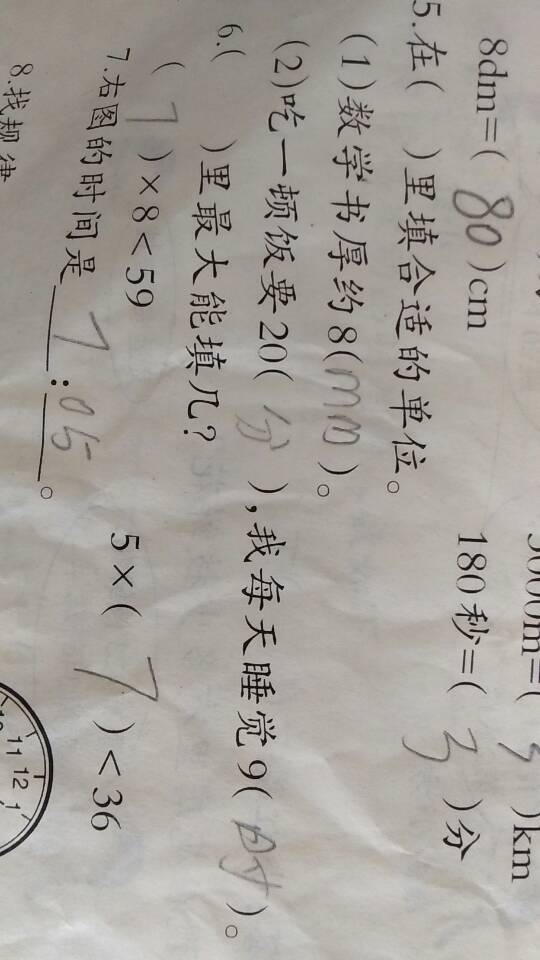 000m=( 3 )km
8dm=( 80 )cm 180秒=( 3 )分
5.在( )里填合适的单位。
(1)数学书厚约8( mm )。
(2)吃一顿饭要20( 分 ),我每天睡觉9( 时 )。
6.( )里最大能填几?
( 7 )×8<59 5×( 7 )<36
7.右图的时间是 7:05 。
11 12 1
8.找规律